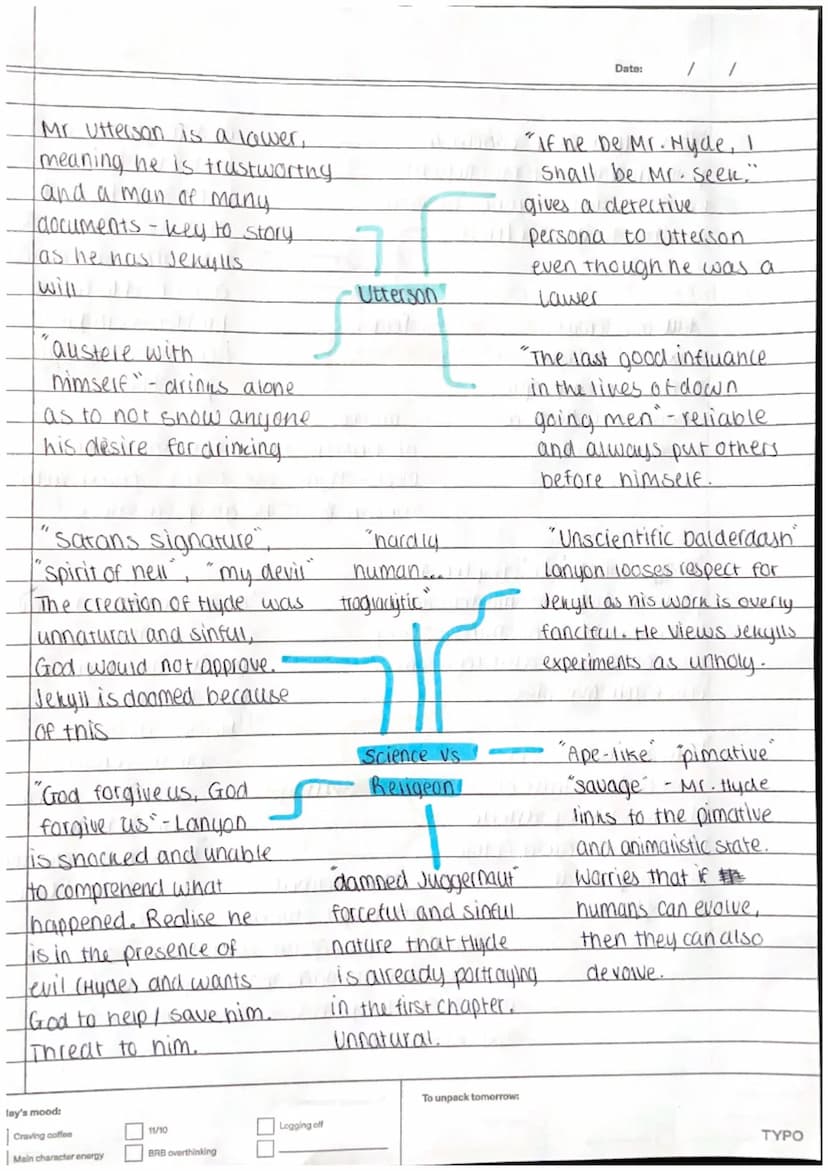 Date: / /
Mr Utterson is a lawer,
meaning he is trustworthy
and a man of many
documents - key to story
as he has Jekylls
will
"If he be Mr. Hyde, I
shall be Mr. Seek."
gives a detective
persona to Utterson
even though he was a
lawer
Utterson
"austere with
himself" - drinks alone
as to not show anyone
his desire for drinking
"The last good influance
in the lives of down
going men" - reliable
and always put others
before himself.
"Satans signature",
"spirit of hell", "my devil"
The creation of Hyde was
unnatural and sinful,
God would not approve.
Jekyll is doomed because
of this
"hardly
human...
troglodytic"
"Unscientific balderdash"
Lanyon looses respect for
Jekyll as his work is overly
fanciful. He views Jekylls
experiments as unholy.
Science vs
Religeon
"God forgive us, God
forgive us" - Lanyon
is shocked and unable
to comprehend what
happened. Realise he
is in the presence of
evil (Hyde) and wants
God to help / save him.
Threat to him.
"damned Juggernaut"
forceful and sinful
nature that Hyde
is already portraying
in the first chapter.
Unnatural.
"Ape-like" "pimative"
"savage" - Mr. Hyde
links to the pimative
and animalistic state.
Worries that if
humans can evolve,
then they can also
devolve.
lay's mood:
Craving coffee
11/10
Logging off
Main character energy
BRB overthinking
To unpack tomorrow:
TYPO